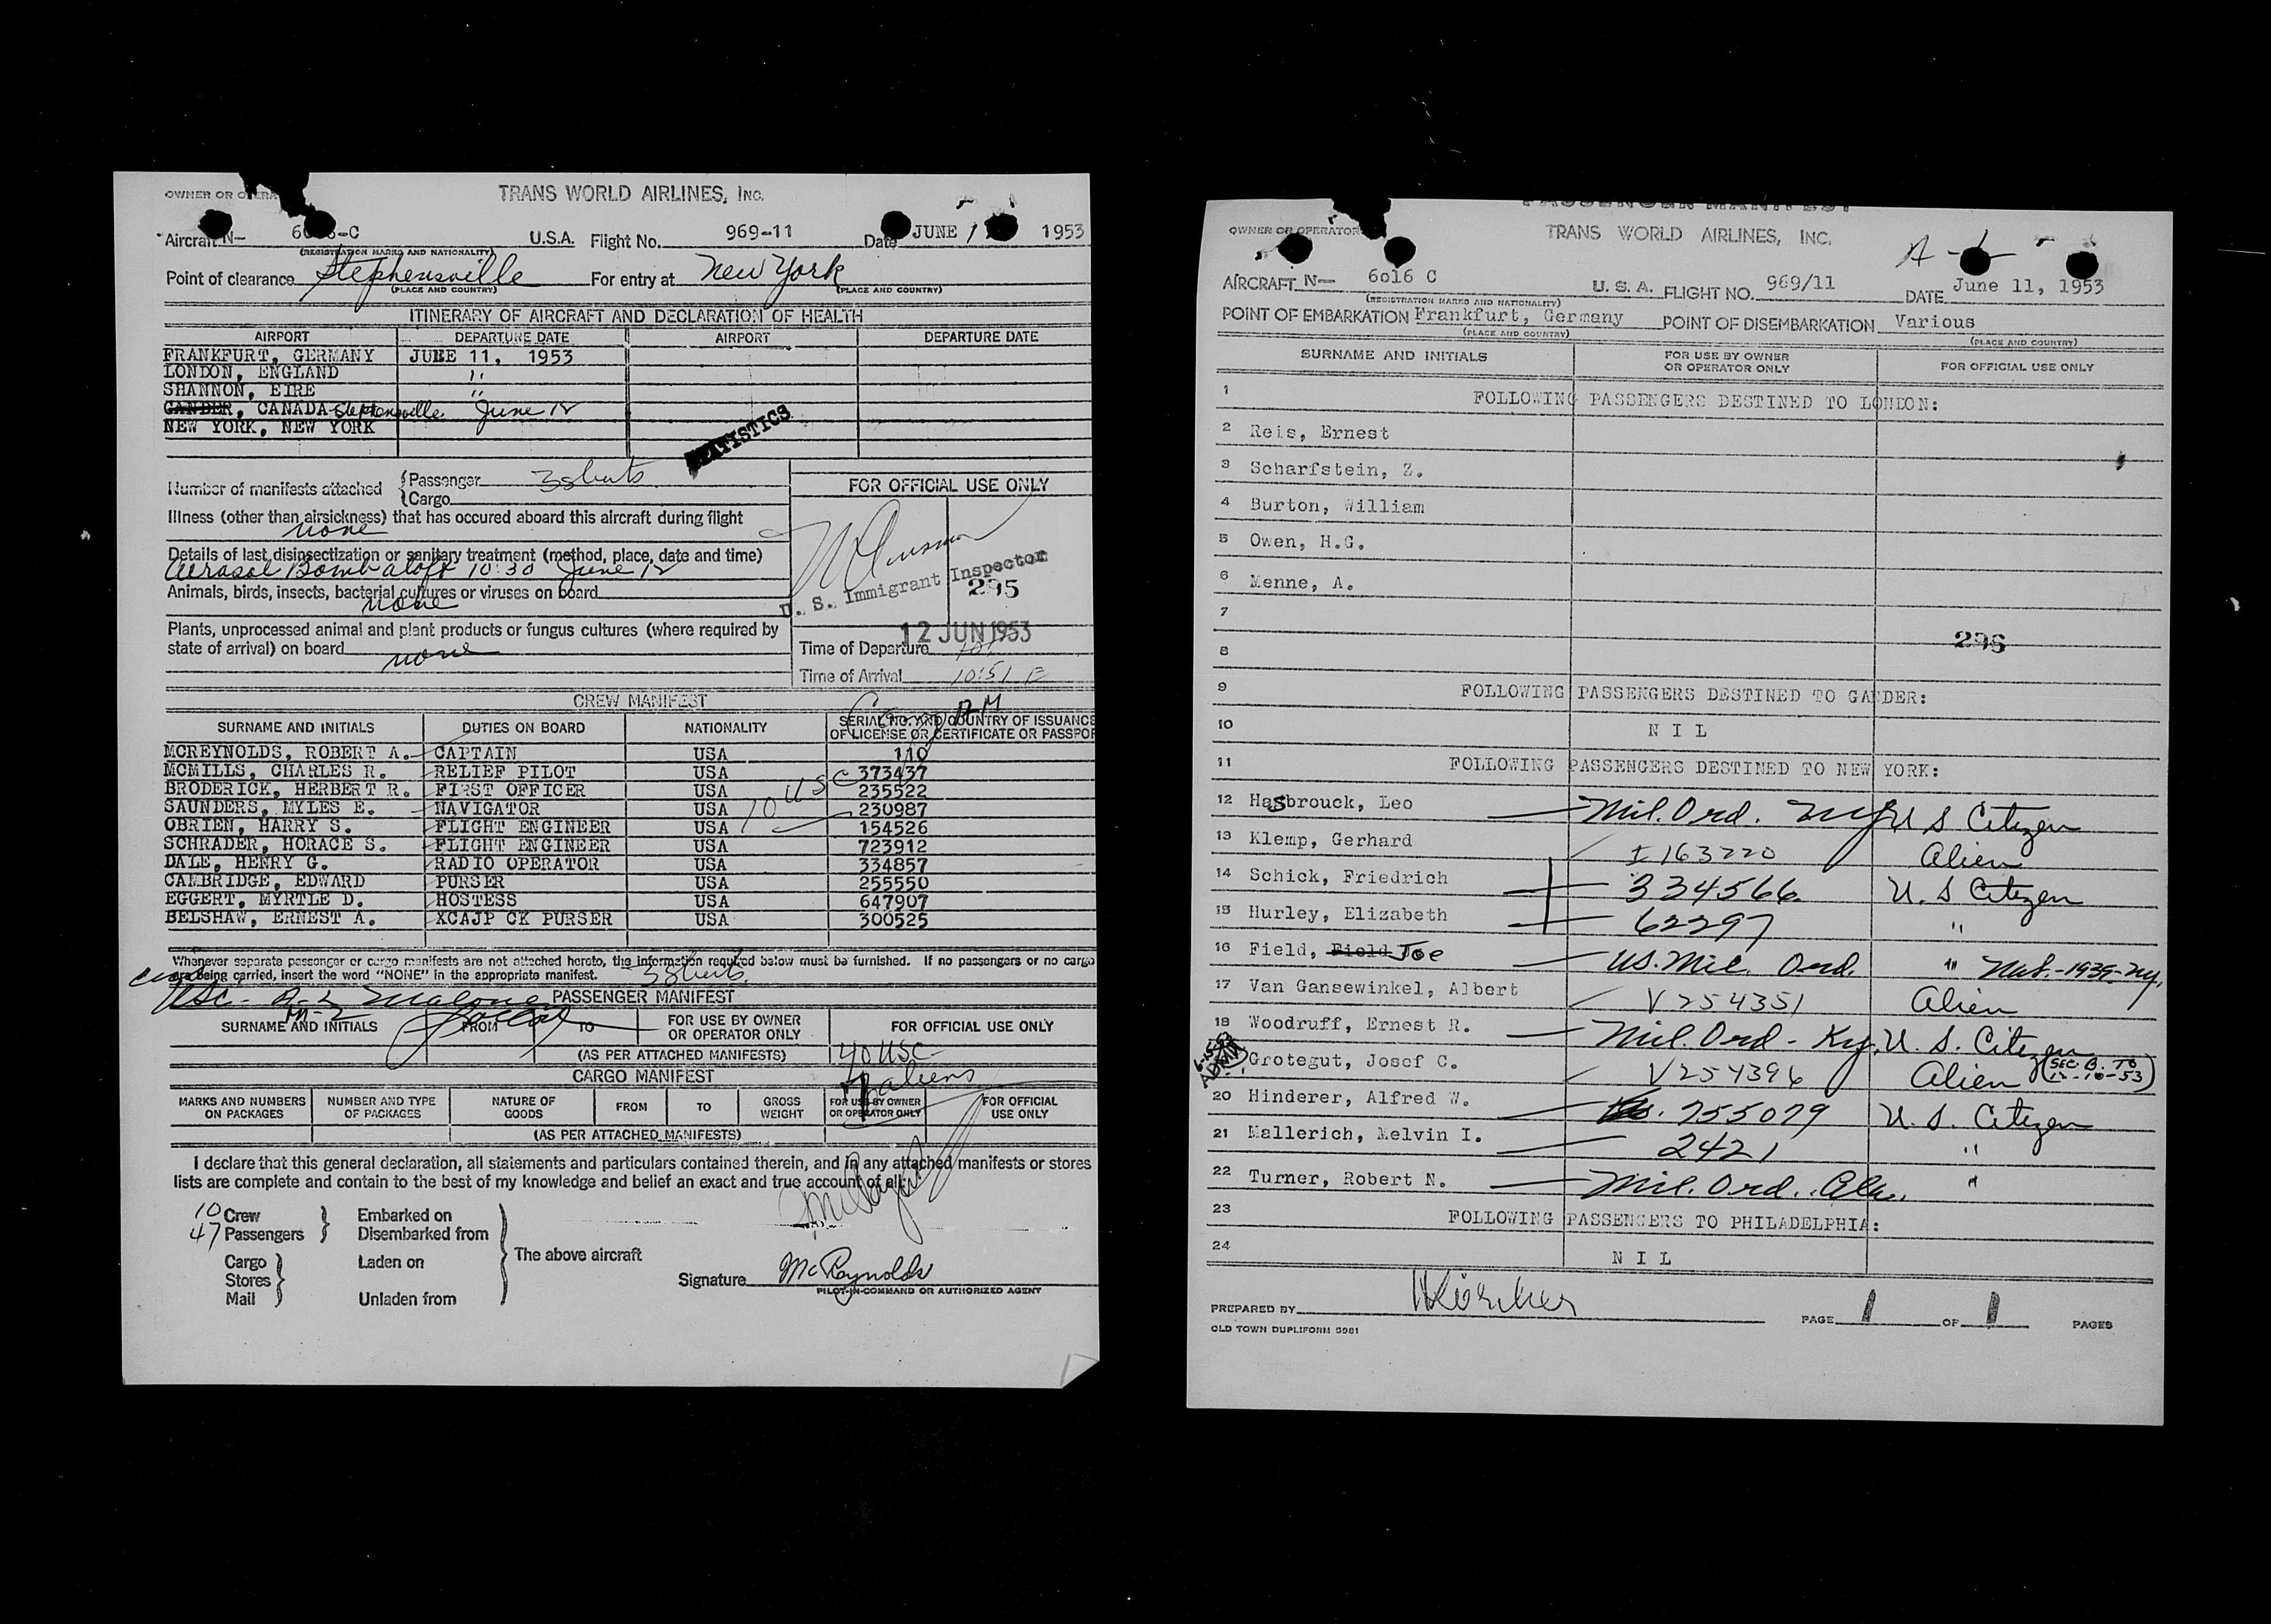 OWNER OR OPERA
TRANS WORLD AIRLINES, INC.
Aircraft N— -C U.S.A. Flight No. 969-11 Date JUNE 1953
(REGISTRATION MARKS AND NATIONALITY)
Point of clearance Stephensville For entry at New York
(PLACE AND COUNTRY) (PLACE AND COUNTRY)
ITINERARY OF AIRCRAFT AND DECLARATION OF HEALTH
AIRPORT DEPARTURE DATE AIRPORT DEPARTURE DATE
FRANKFURT, GERMANY JUNE 11, 1953
LONDON, ENGLAND "
SHANNON, EIRE "
GANDER, CANADA Stephensville June 12
NEW YORK, NEW YORK
STATISTICS
Number of manifests attached Passenger 3 sheets
Cargo
Illness (other than airsickness) that has occured aboard this aircraft during flight
none
Details of last disinsectization or sanitary treatment (method, place, date and time)
Aerosol Bomb aloft 10:30 June 12
Animals, birds, insects, bacterial cultures or viruses on board
none
Plants, unprocessed animal and plant products or fungus cultures (where required by
state of arrival) on board none
FOR OFFICIAL USE ONLY
U. S. Immigrant Inspector
295
12 JUN 1953
Time of Departure
Time of Arrival 10:51
CREW MANIFEST
SURNAME AND INITIALS DUTIES ON BOARD NATIONALITY SERIAL NO. AND COUNTRY OF ISSUANCE
OF LICENSE OR CERTIFICATE OR PASSPOR
MCREYNOLDS, ROBERT A. CAPTAIN USA 110
MCMILLS, CHARLES R. RELIEF PILOT USA 373437
BRODERICK, HERBERT R. FIRST OFFICER USA 235522
SAUNDERS, MYLES E. NAVIGATOR USA 230987
10 USC
OBRIEN, HARRY S. FLIGHT ENGINEER USA 154526
SCHRADER, HORACE S. FLIGHT ENGINEER USA 723912
DALE, HENRY G. RADIO OPERATOR USA 334857
CAMBRIDGE, EDWARD PURSER USA 255550
EGGERT, MYRTLE D. HOSTESS USA 647907
BELSHAW, ERNEST A. XCAJP CK PURSER USA 300525
Whenever separate passenger or cargo manifests are not attached hereto, the information required below must be furnished. If no passengers or no cargo
are being carried, insert the word "NONE" in the appropriate manifest. 3 sheets
PASSENGER MANIFEST
SURNAME AND INITIALS FROM TO FOR USE BY OWNER
OR OPERATOR ONLY FOR OFFICIAL USE ONLY
(AS PER ATTACHED MANIFESTS) 40 USC
aliens
CARGO MANIFEST
MARKS AND NUMBERS
ON PACKAGES NUMBER AND TYPE
OF PACKAGES NATURE OF
GOODS FROM TO GROSS
WEIGHT FOR USE BY OWNER
OR OPERATOR ONLY FOR OFFICIAL
USE ONLY
(AS PER ATTACHED MANIFESTS)
I declare that this general declaration, all statements and particulars contained therein, and in any attached manifests or stores
lists are complete and contain to the best of my knowledge and belief an exact and true account of all:
10 Crew Embarked on
47 Passengers Disembarked from
The above aircraft
Cargo Laden on
Stores
Mail Unladen from
Signature McReynolds
PILOT-IN-COMMAND OR AUTHORIZED AGENT
PASSENGER MANIFEST
OWNER OR OPERATOR
TRANS WORLD AIRLINES, INC.
AIRCRAFT N— 6016 C U. S. A. FLIGHT NO. 969/11 DATE June 11, 1953
(REGISTRATION MARKS AND NATIONALITY)
POINT OF EMBARKATION Frankfurt, Germany POINT OF DISEMBARKATION Various
(PLACE AND COUNTRY) (PLACE AND COUNTRY)
SURNAME AND INITIALS FOR USE BY OWNER
OR OPERATOR ONLY FOR OFFICIAL USE ONLY
1 FOLLOWING PASSENGERS DESTINED TO LONDON:
2 Reis, Ernest
3 Scharfstein, Z.
4 Burton, William
5 Owen, H.G.
6 Menne, A.
7
8 296
9 FOLLOWING PASSENGERS DESTINED TO GANDER:
10 N I L
11 FOLLOWING PASSENGERS DESTINED TO NEW YORK:
12 Hasbrouck, Leo Mil. Ord. NY U S Citizen
13 Klemp, Gerhard I 163220 Alien
14 Schick, Friedrich 334566 U. S Citizen
15 Hurley, Elizabeth 62297 "
16 Field, Field Joe US. Mil. Ord. " Nat.-1939-NY.
17 Van Gansewinkel, Albert V 254351 Alien
18 Woodruff, Ernest R. Mil. Ord - Ky. U. S. Citizen
6-15-53 ADMIN Grotegut, Josef C. V 254396 Alien (SEC. B. TO 12-10-53)
20 Hinderer, Alfred W. 755079 U. S. Citizen
21 Mallerich, Melvin I. 2421 "
22 Turner, Robert N. Mil. Ord. Ala. "
23 FOLLOWING PASSENGERS TO PHILADELPHIA:
24 N I L
PREPARED BY PAGE 1 OF 1 PAGES
OLD TOWN DUPLIFORM 5981